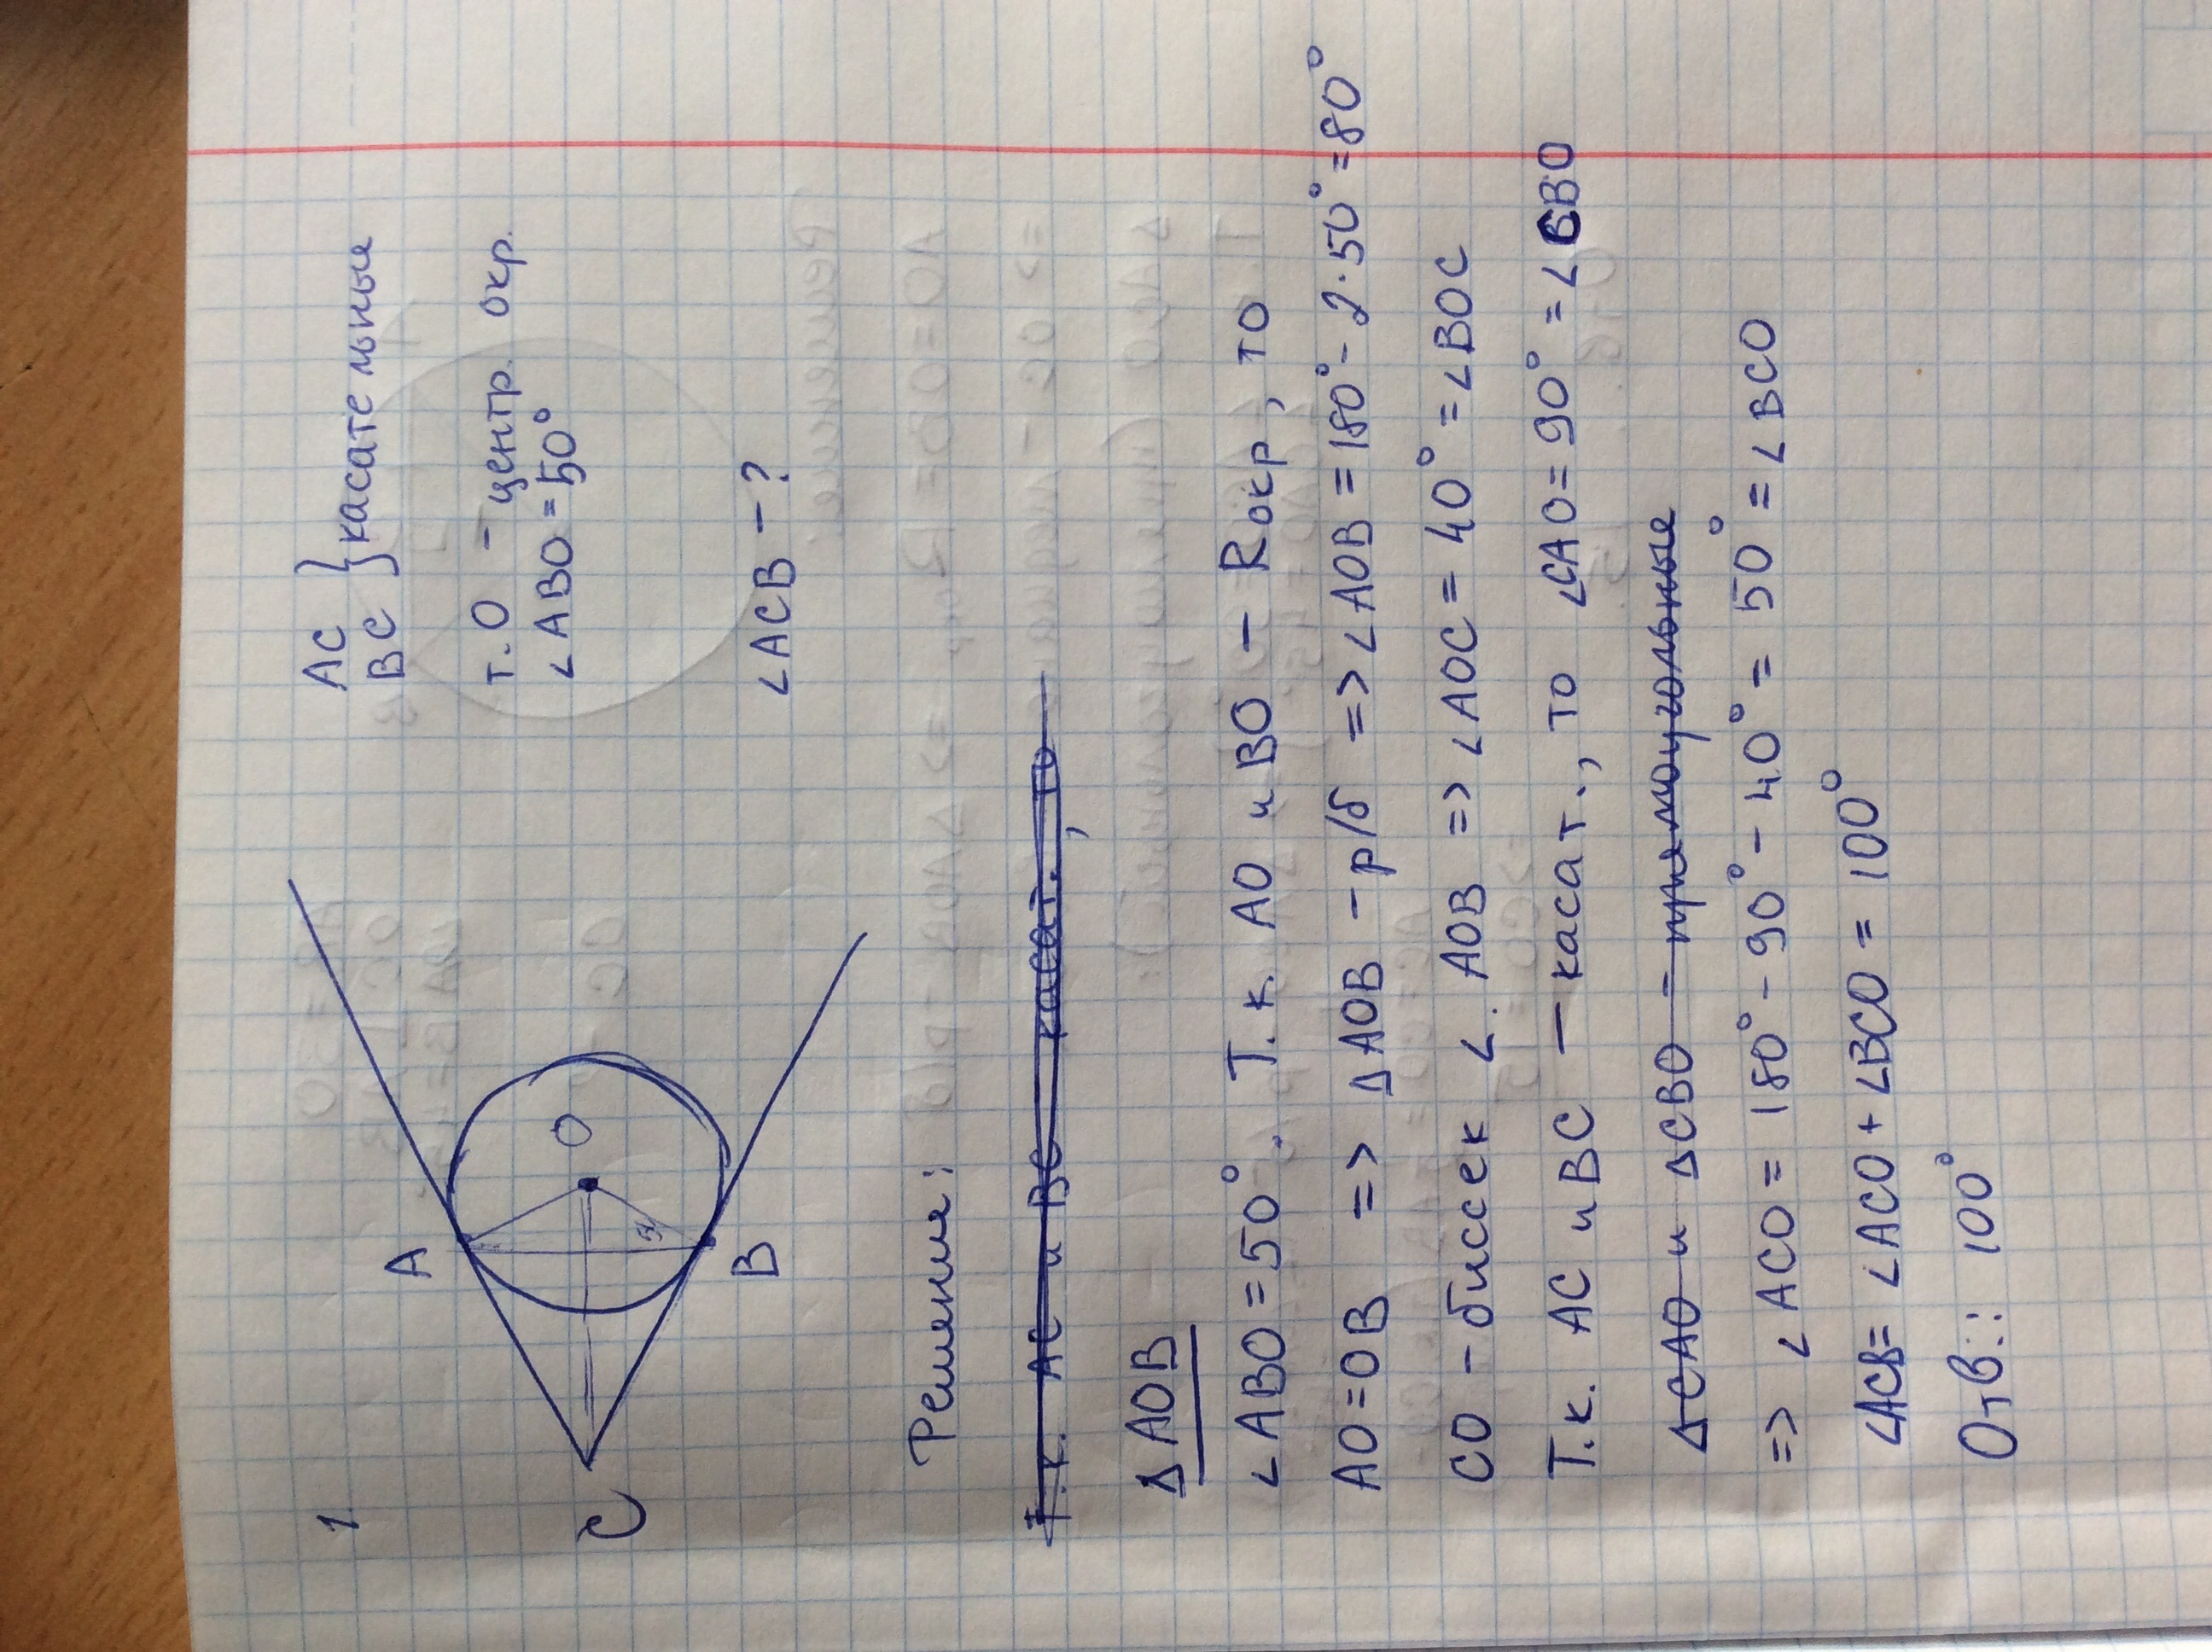 1.
A
C
O
B
AC
BC } касательные
т. О - центр. окр.
∠ABO = 50°
∠ACB - ?
Решение:
Т.к. AC и BC касат., то
Δ AOB
∠ABO = 50°. Т.к. AO и BO - Rокр, то
AO = OB => Δ AOB - р/б => ∠AOB = 180° - 2·50° = 80°
CO - биссек ∠.AOB => ∠AOC = 40° = ∠BOC
Т.к. AC и BC - касат., то ∠CAO = 90° = ∠CBO
ΔCAO и ΔCBO - прямоугольные
=> ∠ACO = 180° - 90° - 40° = 50° = ∠BCO
∠ACB = ∠ACO + ∠BCO = 100°
Отв.: 100°